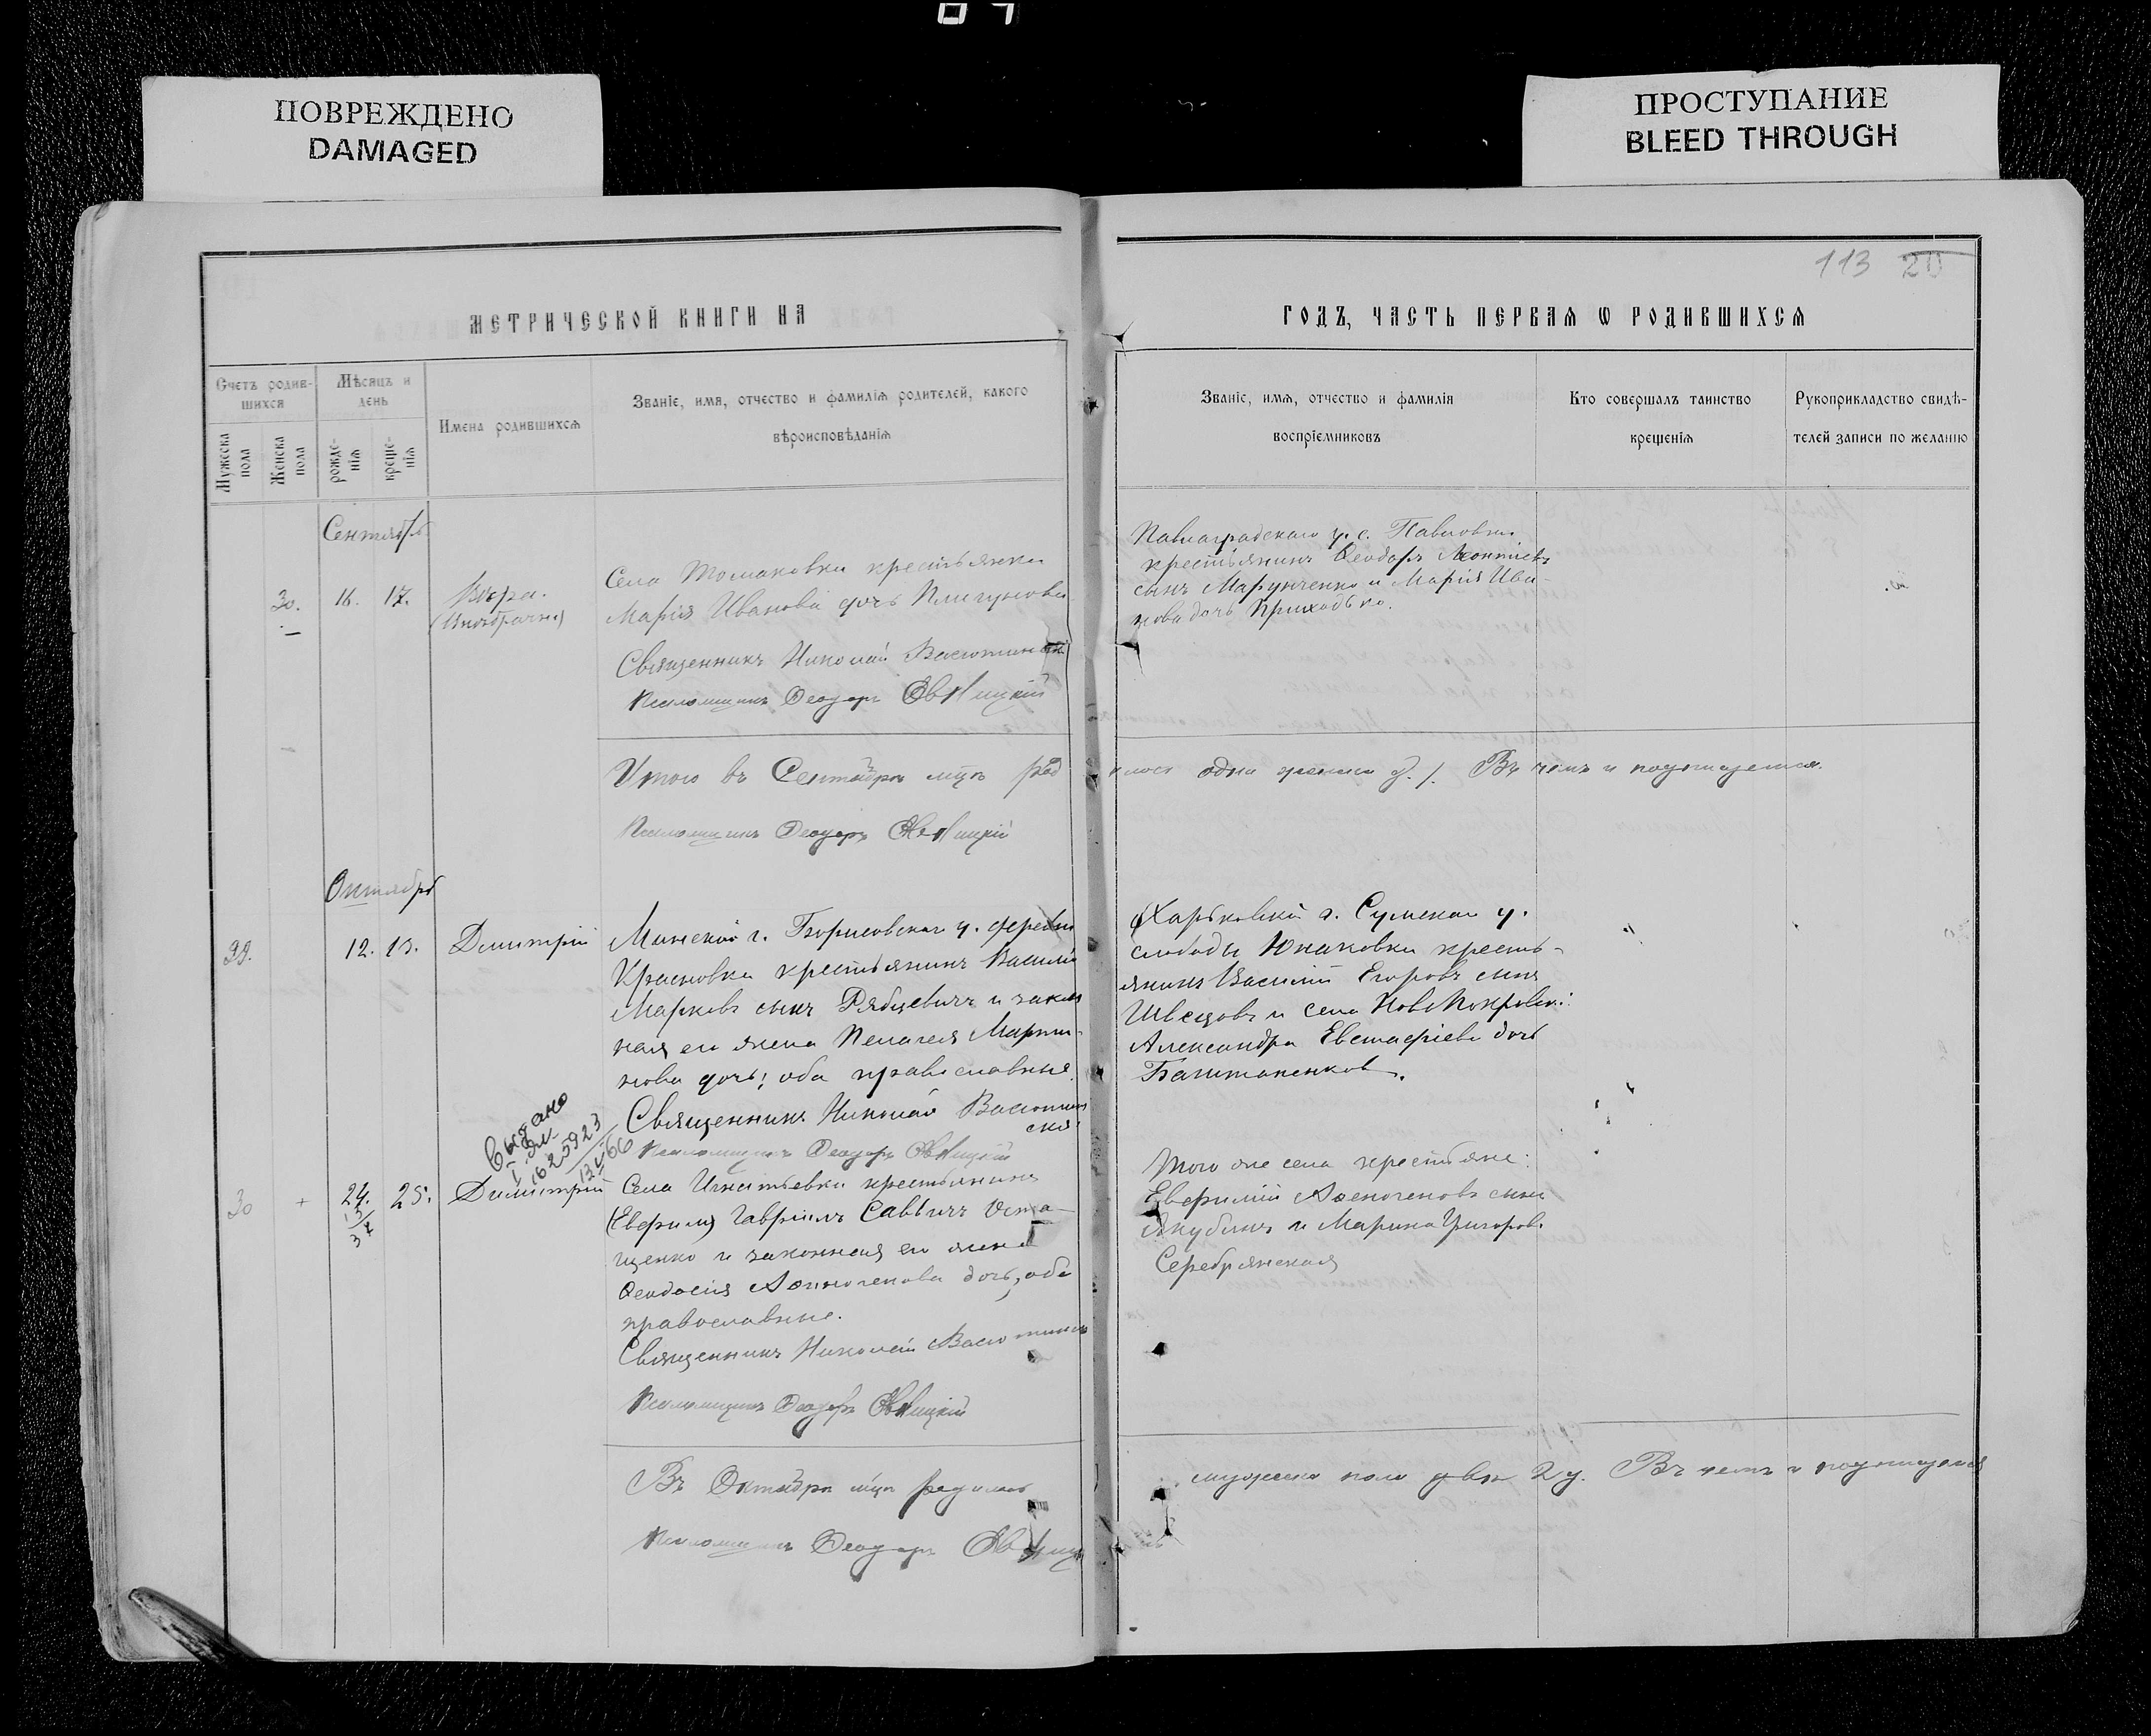 ПОВРЕЖДЕНО
DAMAGED
ПРОСТУПАНИЕ
BLEED THROUGH
113 20
МЕТРИЧЕСКОЙ КНИГИ НА
ГОДЪ, ЧАСТЬ ПЕРВАЯ Ѡ РОДИВШИХСЯ
Счетъ родив-
шихся
Мужеска
пола
Женска
пола
Мѣсяцъ и
день
рожде-
нія
креще-
нія
Имена родившихся
Званіе, имя, отчество и фамилія родителей, какого
вѣроисповѣданія
Званіе, имя, отчество и фамилія
воспріемниковъ
Кто совершалъ таинство
крещенія
Рукоприкладство свидѣ-
телей записи по желанію
Сентябрь
30.
16. 17.
Вѣра.
Села Томаковки крестьянка
Марія Иванова дочь
Священникъ Николай
Псаломщикъ Ѳеодоръ
Павлоградскаго у. с. Павловки
крестьянинъ Ѳеодоръ Леонтіевъ
сынъ Марунченко и Марія Ива-
нова дочь Приходько.
Итого въ Сентябрѣ мцѣ род
одна женска Въ чемъ и подписуемся.
Псаломщикъ Ѳеодоръ
Октябрь
29.
12. 13.
Димитрій
Минской г. Борисовскаго у. деревни
Красновки крестьянинъ Василій
Марковъ сынъ Рябцевичъ и закон
ная его жена Пелагея Марти-
нова дочь; оба православные.
Священникъ Николай
Псаломщикъ Ѳеодоръ
Харьковской г. Сумскаго у.
слободы Юнаковки кресть-
янинъ Василій Егоровъ сынъ
Швецовъ и села НовоПокровки
Александра Евстафіева дочь
Баштаненкова.
выдано
1625923
30
24. 25.
Димитрій
Села Игнатьевки крестьянинъ
Гавріилъ Саввичъ Оста-
щенко и законная его жена
Ѳеодосія дочь, оба
православные.
Священникъ Николай
Псаломщикъ Ѳеодоръ
Того же села крестьяне:
Евфимій сынъ
и Марина Григорова
Серебрянская
Въ Октябрѣ мцѣ родилось
мужеска пола два 2 д. Въ чемъ и подписуемся
Псаломщикъ Ѳеодоръ